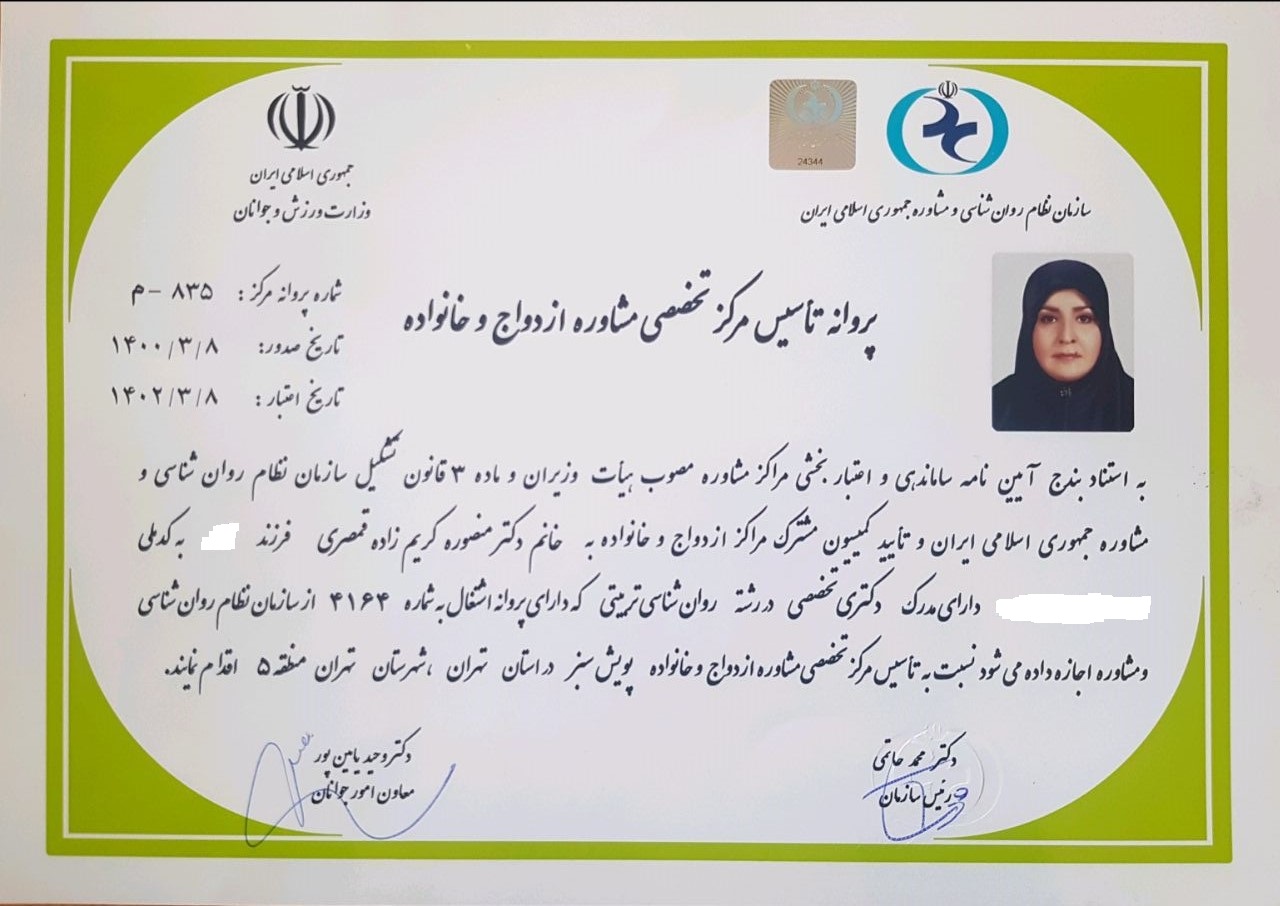 جمهوری اسلامی ایران
وزارت ورزش و جوانان
24344
سازمان نظام روان شناسی و مشاوره جمهوری اسلامی ایران
شماره پروانه مرکز : ۸۳۵ - م
تاریخ صدور: ۱۴۰۰/۳/۸
تاریخ اعتبار : ۱۴۰۲/۳/۸
پروانه تأسیس مرکز تخصصی مشاوره ازدواج و خانواده
به استناد بند ج آیین نامه ساماندهی و اعتبار بخشی مراکز مشاوره مصوب هیأت وزیران و ماده ۳ قانون تشکیل سازمان نظام روان شناسی و
مشاوره جمهوری اسلامی ایران و تأیید کمیسیون مشترک مراکز ازدواج و خانواده به خانم دکتر منصوره کریم زاده قمصری فرزند به کدملی
دارای مدرک دکتری تخصصی در رشته روان شناسی تربیتی که دارای پروانه اشتغال به شماره ۴۱۶۴ از سازمان نظام روان شناسی
و مشاوره اجازه داده می شود نسبت به تأسیس مرکز تخصصی مشاوره ازدواج و خانواده پویش سبز در استان تهران ، شهرستان تهران منطقه ۵ اقدام نمایند.
دکتر محمد حاتمی
رئیس سازمان
دکتر وحید یامین پور
معاون امور جوانان